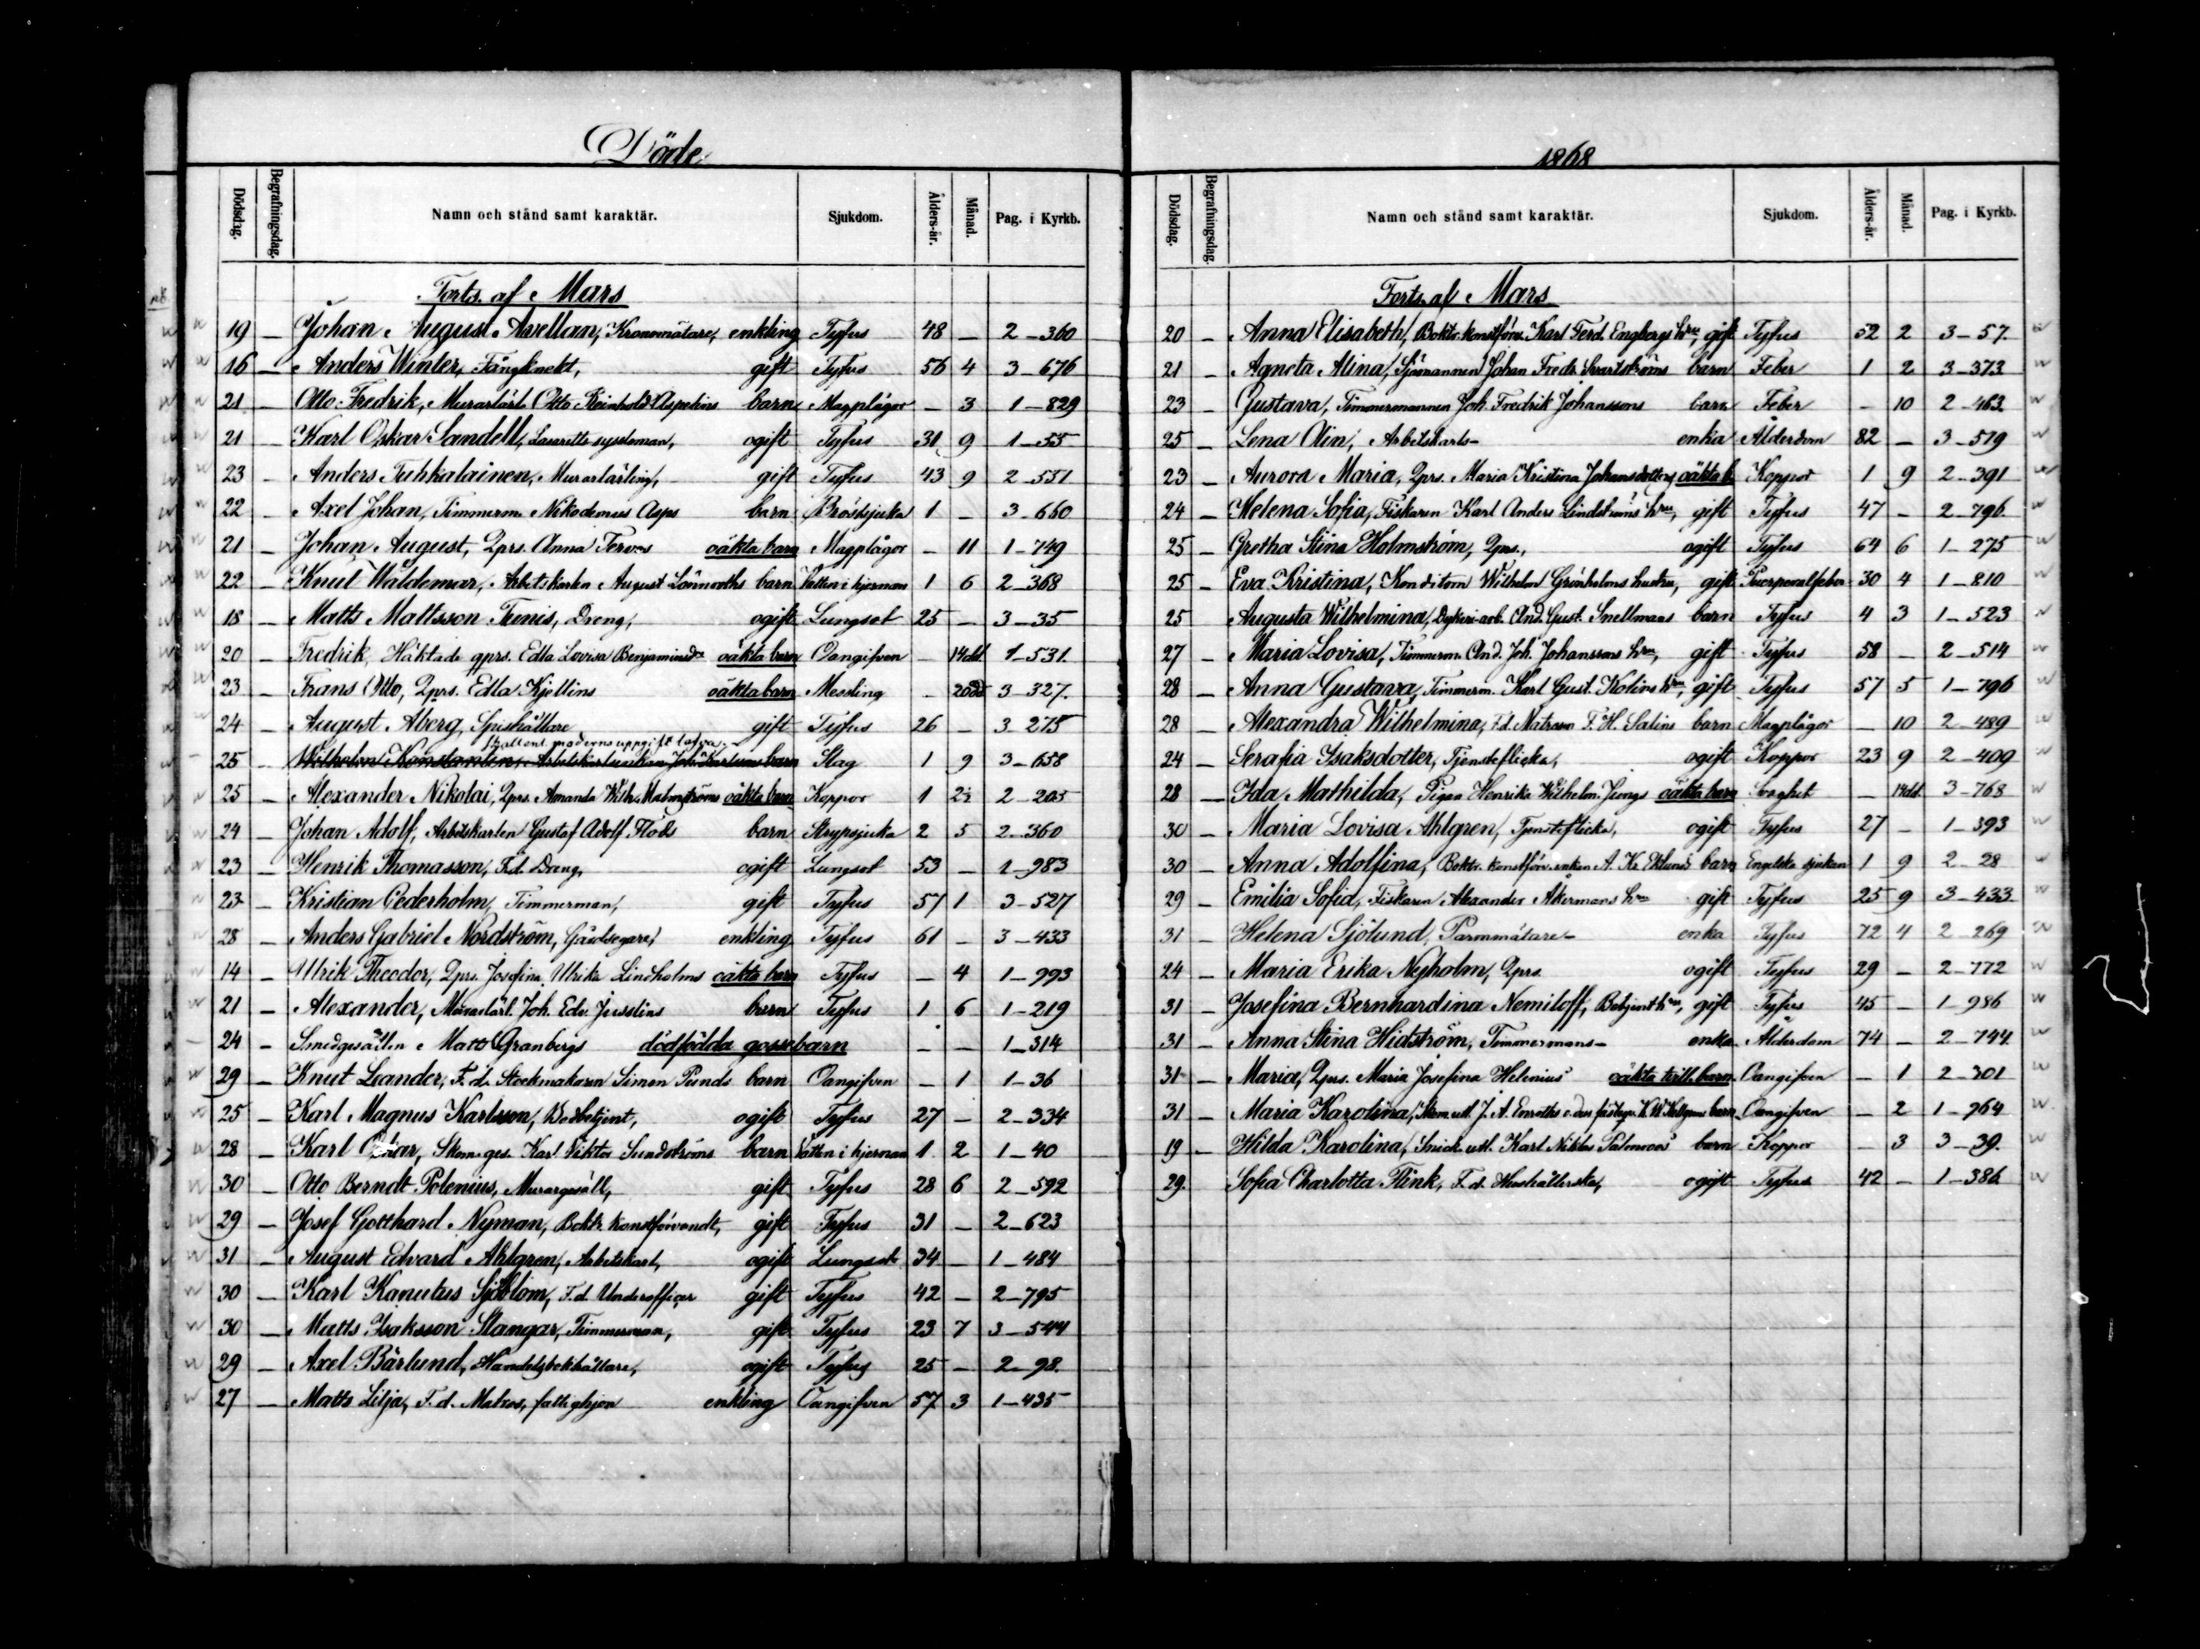 Döde
Dödsdag. Begrafningsdag. Namn och stånd samt karaktär. Sjukdom. Ålders-år. Månad. Pag. i Kyrkb.
Forts. af Mars
19 — Johan August Avellan, Kronomätare, enkling Tyfus 48 — 2-360
16 — Anders Winter, Fångknekt, gift Tyfus 56 4 3-676
21 — Otto Fredrik, Murarlärl. Otto Reinhold Aspelins barn Magplågor — 3 1-829
21 — Karl Oskar Sandell, Lasaretts syssloman, ogift Tyfus 31 9 1-55
23 — Anders Tuhkalainen, Murarlärling, gift Tyfus 43 9 2-551
22 — Axel Johan, Timmerm. Nikodemus Asps barn Bröstsjuka 1 — 3-660
21 — Johan August, Qprs. Anna Tervos oäkta barn Magplågor — 11 1-749
22 — Knut Waldemar, Arbetskarlen August Lönnroths barn Vatten i hjernan 1 6 2-368
18 — Matts Mattsson Tunis, Dreng, ogift Lungsot 25 — 3-35
20 — Fredrik, Häktade qprs. Edla Lovisa Benjaminsdrs oäkta barn Oangifven — 14 dd. 1-531.
23 — Frans Otto, Qprs. Edla Kjellins oäkta barn Messling — 20 dd 3-327.
24 — August Åberg, Spishållare gift Tyfus 26 — 3-275
enl. moderns uppgift
25 — Wilhelm Konstantin, barn Slag 1 9 3-658
25 — Alexander Nikolai, Qprs. Amanda Wilh. Malmströms oäkta barn Koppor 1 2½ 2-205
24 — Johan Adolf, Arbetskarlen Gustaf Adolf Flöds barn Strypsjuka 2 5 2-360
23 — Henrik Thomasson, F.d. Dreng, ogift Lungsot 53 — 1-983
23 — Kristian Cederholm, Timmerman, gift Tyfus 57 1 3-527
28 — Anders Gabriel Nordström, Gårdsegare, enkling Tyfus 61 — 3-433
14 — Ulrik Theodor, Qprs. Josefina Ulrika Lindholms oäkta barn Tyfus — 4 1-993
21 — Alexander, Murarlärl. Joh. Edv. Jusslins barn Tyfus 1 6 1-219
24 — Smedgesällen Matts Granbergs dödfödda gossebarn — — 1-314
29 — Knut Leander, F.d. Stockmakaren Simon Punds barn Oangifven — 1 1-36
25 — Karl Magnus Karlsson, Bodbetjent, ogift Tyfus 27 — 2-334
28 — Karl Oskar, Skom.ges. Karl Viktor Sundströms barn Vatten i hjernan 1 2 1-40
30 — Otto Berndt Polenius, Murargesäll, gift Tyfus 28 6 2-592
29 — Josef Gotthard Nyman, Boktr. konstförvandt, gift Tyfus 31 — 2-623
31 — August Edvard Ahlgren, Arbetskarl, ogift Lungsot 34 — 1-484
30 — Karl Kanutus Sjöblom, F.d. Underofficer gift Tyfus 42 — 2-795
30 — Matts Isaksson Stangar, Timmerman, gift Tyfus 23 7 3-544
29 — Axel Bärlund, Handelsbokhållare, ogift Tyfus 25 — 2-98.
27 — Matts Lilja, F.d. Matros, fattighjon enkling Oangifven 57 3 1-435
1868
Dödsdag. Begrafningsdag. Namn och stånd samt karaktär. Sjukdom. Ålders-år. Månad. Pag. i Kyrkb.
Forts. af Mars
20 — Anna Elisabeth, Boktr. konstförv. Karl Ferd. Engbergs hru, gift Tyfus 52 2 3-57.
21 — Agneta Alina, Sjömannen Johan Fredr. Svartströms barn Feber 1 2 3-373
23 — Gustava, Timmermannen Joh. Fredrik Johanssons barn Feber — 10 2-463.
25 — Lena Alin, Arbetskarls- enka Ålderdom 82 — 3-579
23 — Aurora Maria, Qprs. Maria Kristina Johansdotters oäkta b. Koppor 1 9 2-391
24 — Helena Sofia, Fiskaren Karl Anders Lindströms hru, gift Tyfus 47 — 2-796.
25 — Gretha Stina Holmström, Qprs., ogift Tyfus 64 6 1-275
25 — Eva Kristina, Konditorn Wilhelm Grönholms hustru, gift Puerperalfeber 30 4 1-810
25 — Augusta Wilhelmina, Dykeri-arb. And. Gust. Snellmans barn Tyfus 4 3 1-523
27 — Maria Lovisa, Timmerm. And. Joh. Johanssons hru, gift Tyfus 58 — 2-514
28 — Anna Gustava, Timmerm. Karl Gust. Kolins hru, gift Tyfus 57 5 1-796
28 — Alexandra Wilhelmina, F.d. Matrosen F. H. Salins barn Magplågor — 10 2-489
24 — Serafia Isaksdotter, Tjensteflicka, ogift Koppor 23 9 2-409
28 — Ida Mathilda, Pigan Henrika Wilhelm. Ljungs oäkta barn Svaghet — 14 dd. 3-768
30 — Maria Lovisa Ahlgren, Tjensteflicka, ogift Tyfus 27 — 1-393
30 — Anna Adolfina, Boktr. konstförv. enkan A. K. Eklunds barn Engelska sjukan 1 9 2-28
29 — Emilia Sofia, Fiskaren Alexander Åkermans hru gift Tyfus 25 9 3-433
31 — Helena Sjölund, Parmmätare- enka Tyfus 72 4 2 269
24 — Maria Erika Nyholm, Qprs. ogift Tyfus 29 — 2-772
31 — Josefina Bernhardina Nemiloff, Betjent hru, gift Tyfus 45 — 1-986
31 — Anna Stina Hidström, Timmermans- enka Ålderdom 74 — 2-744.
31 — Maria, Qprs. Maria Josefina Helenius' oäkta tvill. barn Oangifven — 1 2-301
31 — Maria Karolina, J. A. Enroths barn Oangifven — 2 1-964
19 — Hilda Karolina, Snick. utl. Karl Niklas Salmroos' barn Koppor — 3 3-39.
29. Sofia Charlotta Flink, F.d. Hushållerska, ogift Tyfus 42 — 1-386